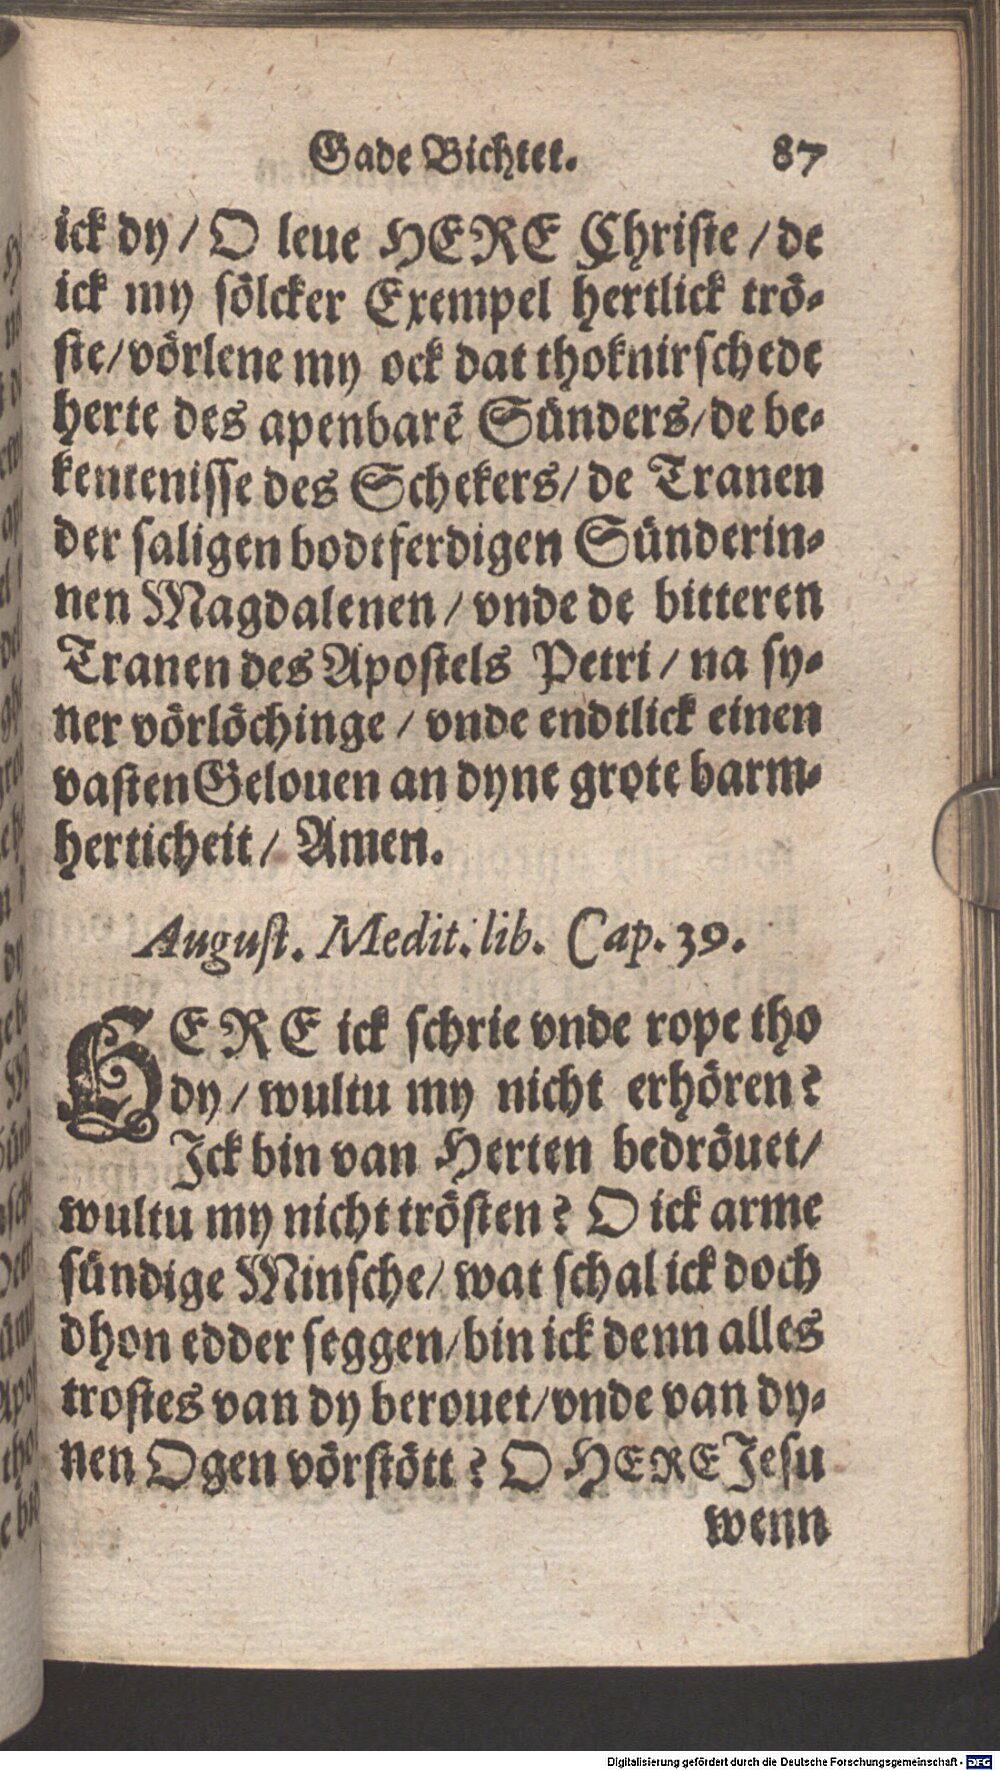 Gade Bichtet. 87
ick dy / O leue HERE Christe / de
ick my sölcker Exempel hertlick trö-
ste / vörlene my ock dat thoknirschede
herte des apenbarē Sünders / de be-
kentenisse des Schekers / de Tranen
der saligen bodtferdigen Sünderin-
nen Magdalenen / vnde de bitteren
Tranen des Apostels Petri / na sy-
ner vörlöchinge / vnde endtlick einen
vasten Gelouen an dyne grote barm-
herticheit / Amen.
August. Medit. lib. Cap. 39.
HERE ick schrie vnde rope tho
dy / wultu my nicht erhören?
Ick bin van Herten bedröuet /
wultu my nicht trösten? O ick arme
sündige Minsche / wat schal ick doch
dhon edder seggen / bin ick denn alles
trostes van dy berouet / vnde van dy-
nen Ogen vörstött? O HERE Jesu
wenn
Digitalisierung gefördert durch die Deutsche Forschungsgemeinschaft - DFG